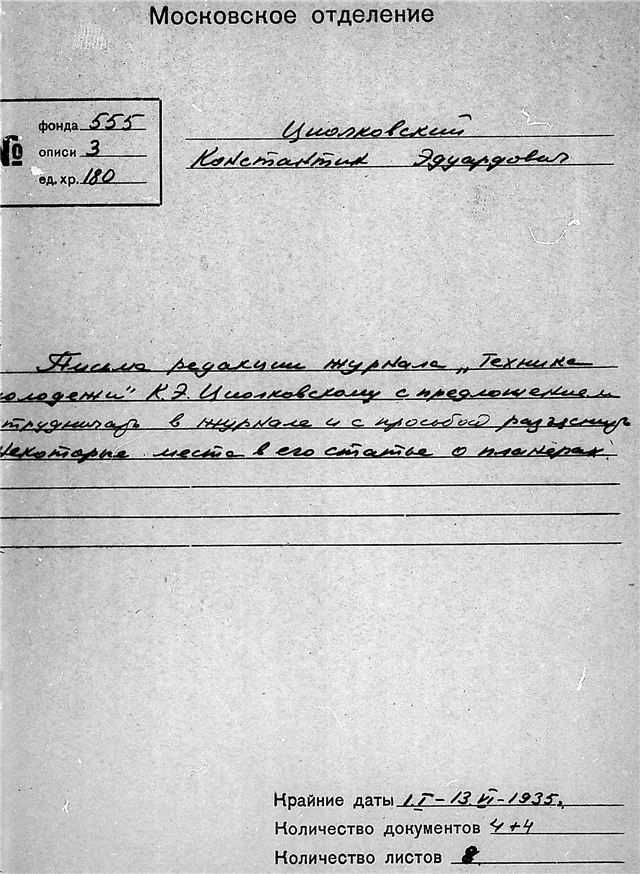 Московское отделение
№
фонда 555
описи 3
ед. хр. 180
Циолковский
Константин Эдуардович
Письма редакции журнала „Техника
олодежи" К.Э. Циолковскому с предложением
трудничать в журнале и с прозьбой разъяснить
некоторые места в его статье о планерах.
Крайние даты 1.I – 13.VI – 1935.
Количество документов 4+4
Количество листов 8